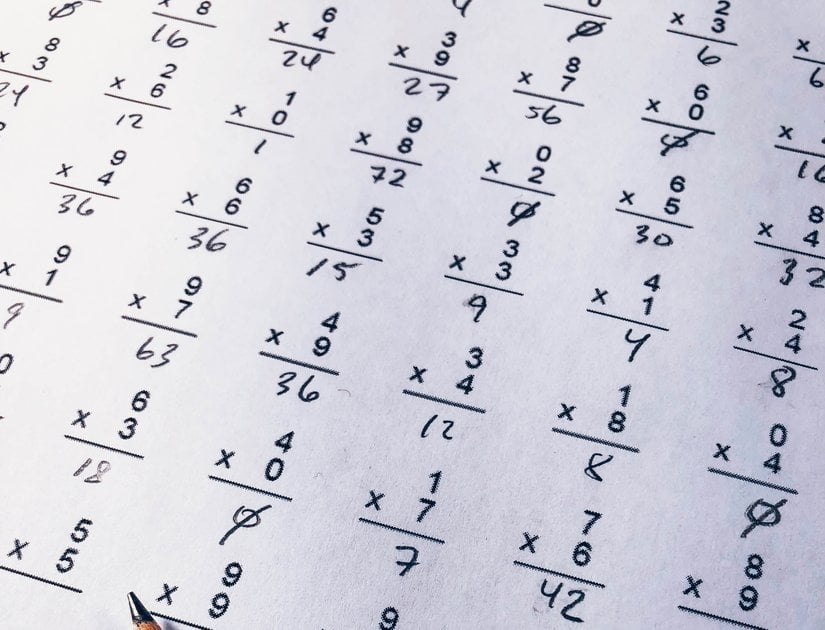 0 2
x 3 x
Ø 6 6
8 6 3 8 6
x x 4 x 9 x 7 x 0 x
16 24 27 56 Ø 16
8 2 1 9 0 6 8
x 3 x 6 x 0 x 8 x 2 x 5 x 4
24 12 1 72 Ø 30 32
9 6 5 3 4 2
x 4 x 6 x 3 x 3 x 1 x 4
36 36 15 9 4 8
9 9 4 3 1 0
x 1 x 7 x 9 x 4 x 8 x 4
9 63 36 12 8 Ø
0 6 4 1 7 8
x 3 x 0 x 7 x 6 x 9
18 Ø 7 42
5 9 9
x 5 x 9